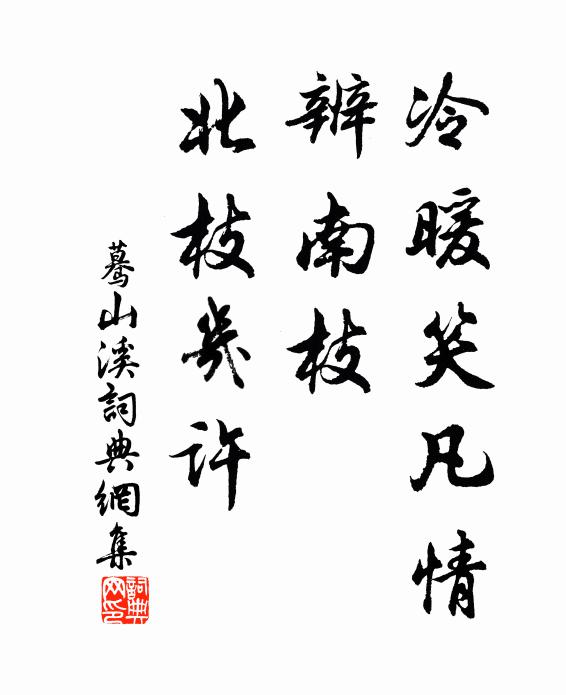 冷暖笑凡情
辨南枝
北枝幾許
驀山溪詞典網集
詞典網印